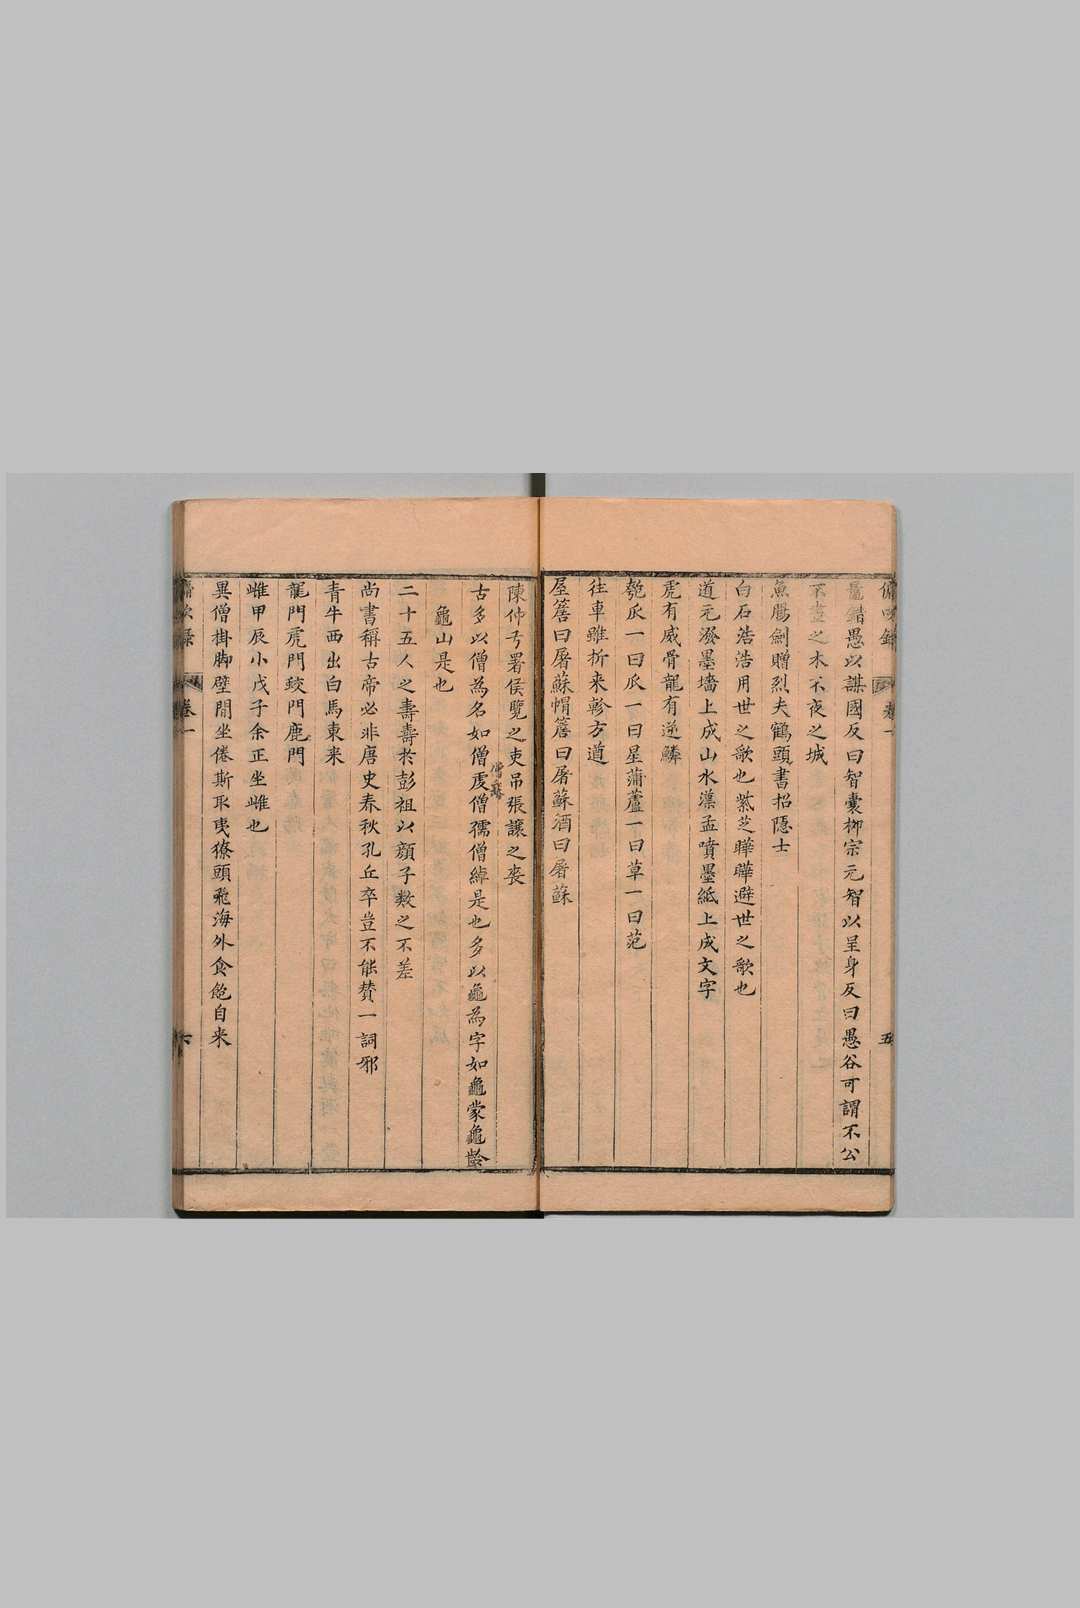 卷一
五
鼂錯愚以謀國反曰智囊柳宗元智以呈身反曰愚谷可謂不公
不盡之木不夜之城
魚膓劍贈烈夫鶴頭書招隱士
白石浩浩用世之歌也紫芝曄曄避世之歌也
道元潑墨墻上成山水漢孟噴墨紙上成文字
虎有威骨龍有逆鱗
匏瓜一曰瓜一曰星蒲蘆一曰草一曰范
往車雖折来軫方遒
屋簷曰屠蘇帽簷曰屠蘇酒曰屠蘇
陳仲弓署侯覽之吏吊張讓之喪
古多以僧為名如僧虔僧孺僧綽是也多以龜為字如龜蒙龜齡
龜山是也
二十五人之壽壽於彭祖以顔子数之不差
尚書稱古帝必非唐史春秋孔丘卒豈不能賛一詞邪
青牛西出白馬東来
龍門虎門蛟門鹿門
雌甲辰小戊子余正坐雌也
異僧掛脚壁間坐倦斯耴夷獠頭飛海外食飽自来
卷一
六